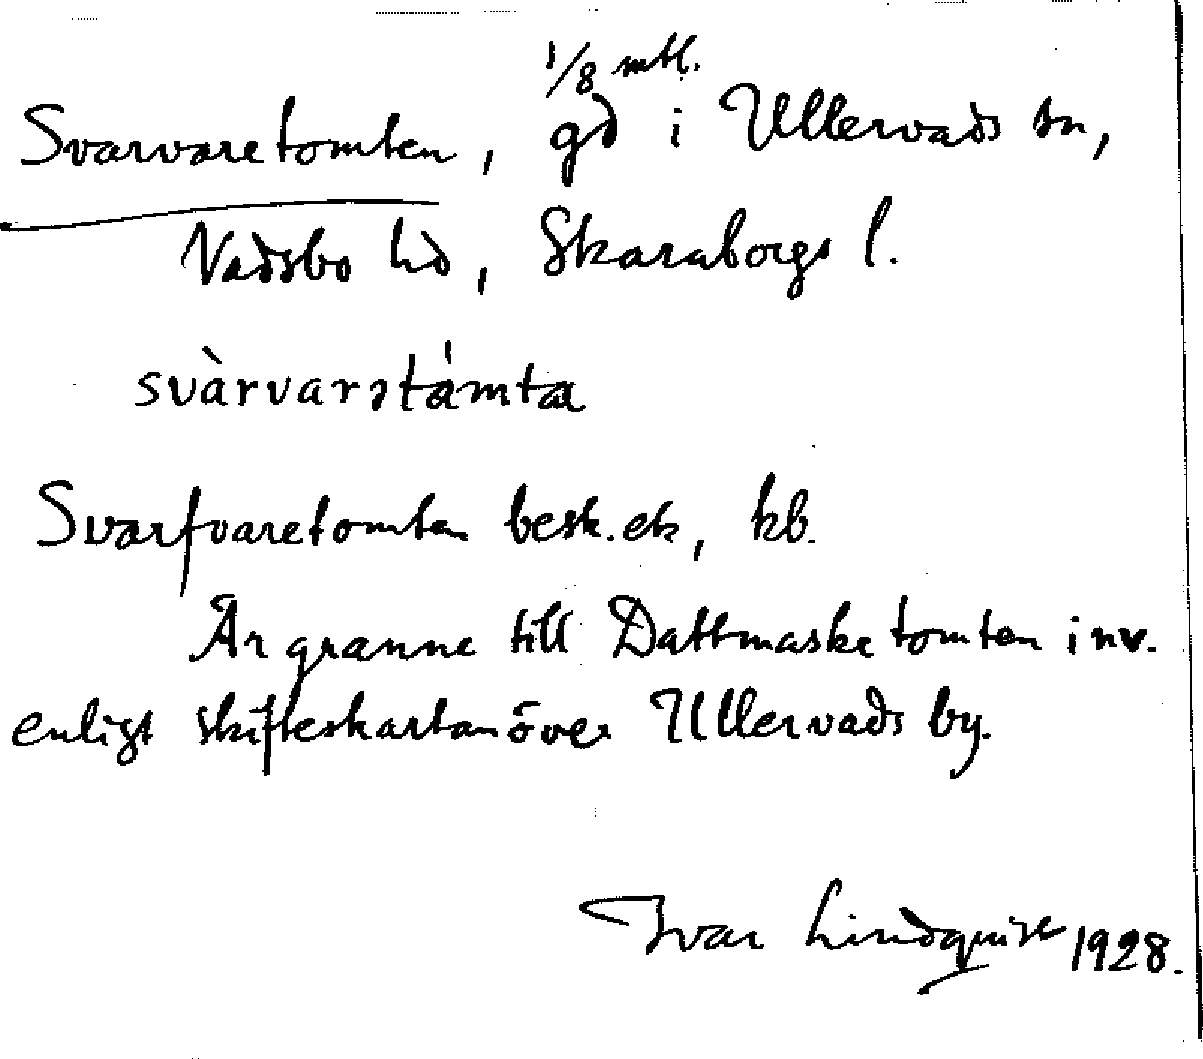 1/8 mtl.
Svarvaretomten, gd i Ullervads sn,
Vadsbo hd, Skaraborgs l.
svàrvarətámta
Svarfvaretomten besk. ek, kb.
Är granne till Dattmasketomten inv.
enligt skifteskartan över Ullervads by.
Ivar Lindquist 1928.